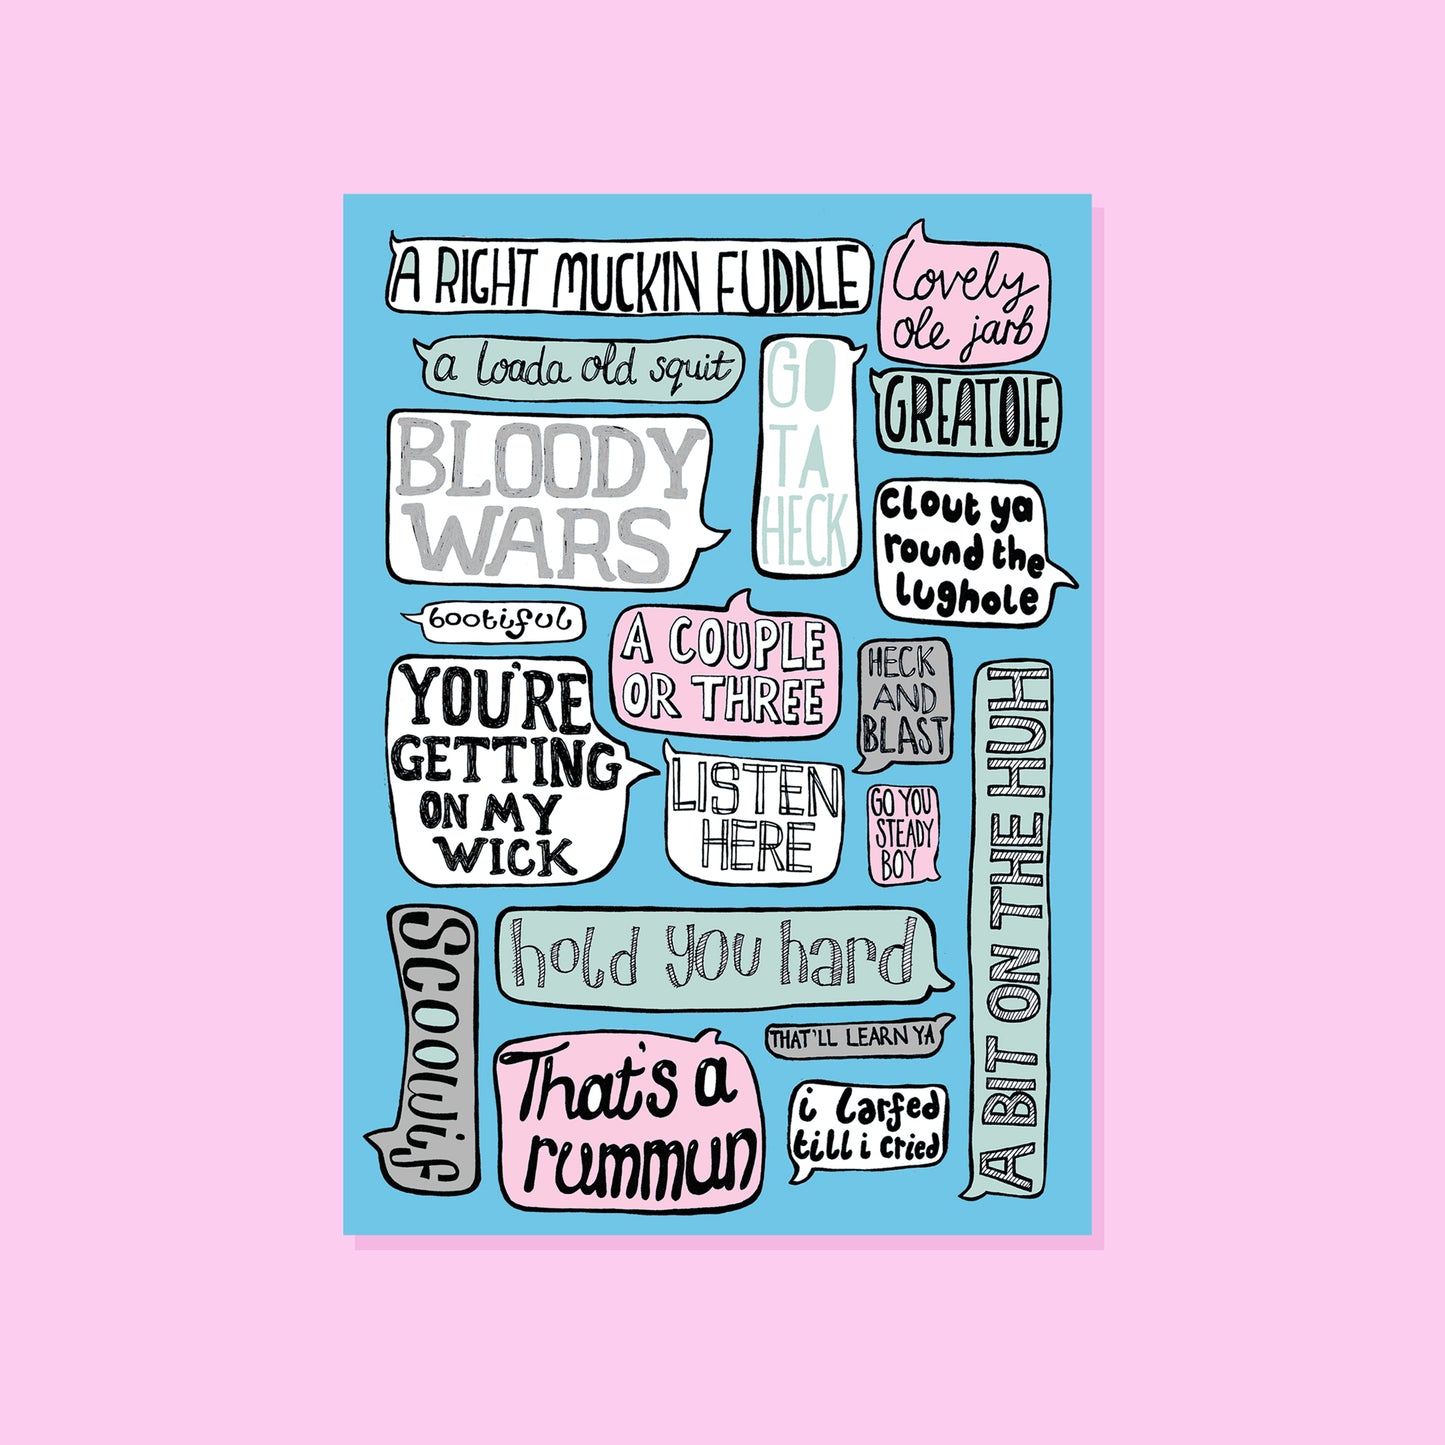 A RIGHT MUCKIN FUDDLE
Lovely
ole jarb
a loada old squit
GO
TA
HECK
GREATOLE
BLOODY
WARS
clout ya
round the
lughole
bootiful
A COUPLE
OR THREE
HECK
AND
BLAST
YOU'RE
GETTING
ON MY
WICK
LISTEN
HERE
GO YOU
STEADY
BOY
A BIT ON THE HUH
Scoowif
hold you hard
THAT'LL LEARN YA
That's a
rummun
i larfed
till i cried